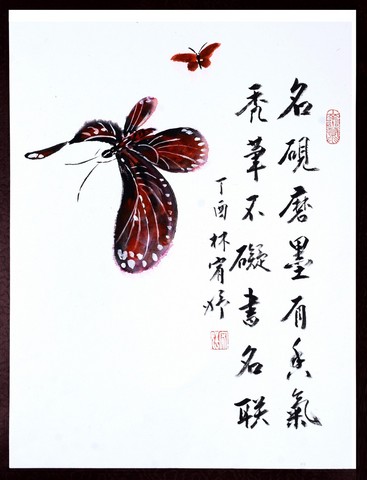 名硯磨墨有香氣
秃筆不礙書名联
丁酉 林宥